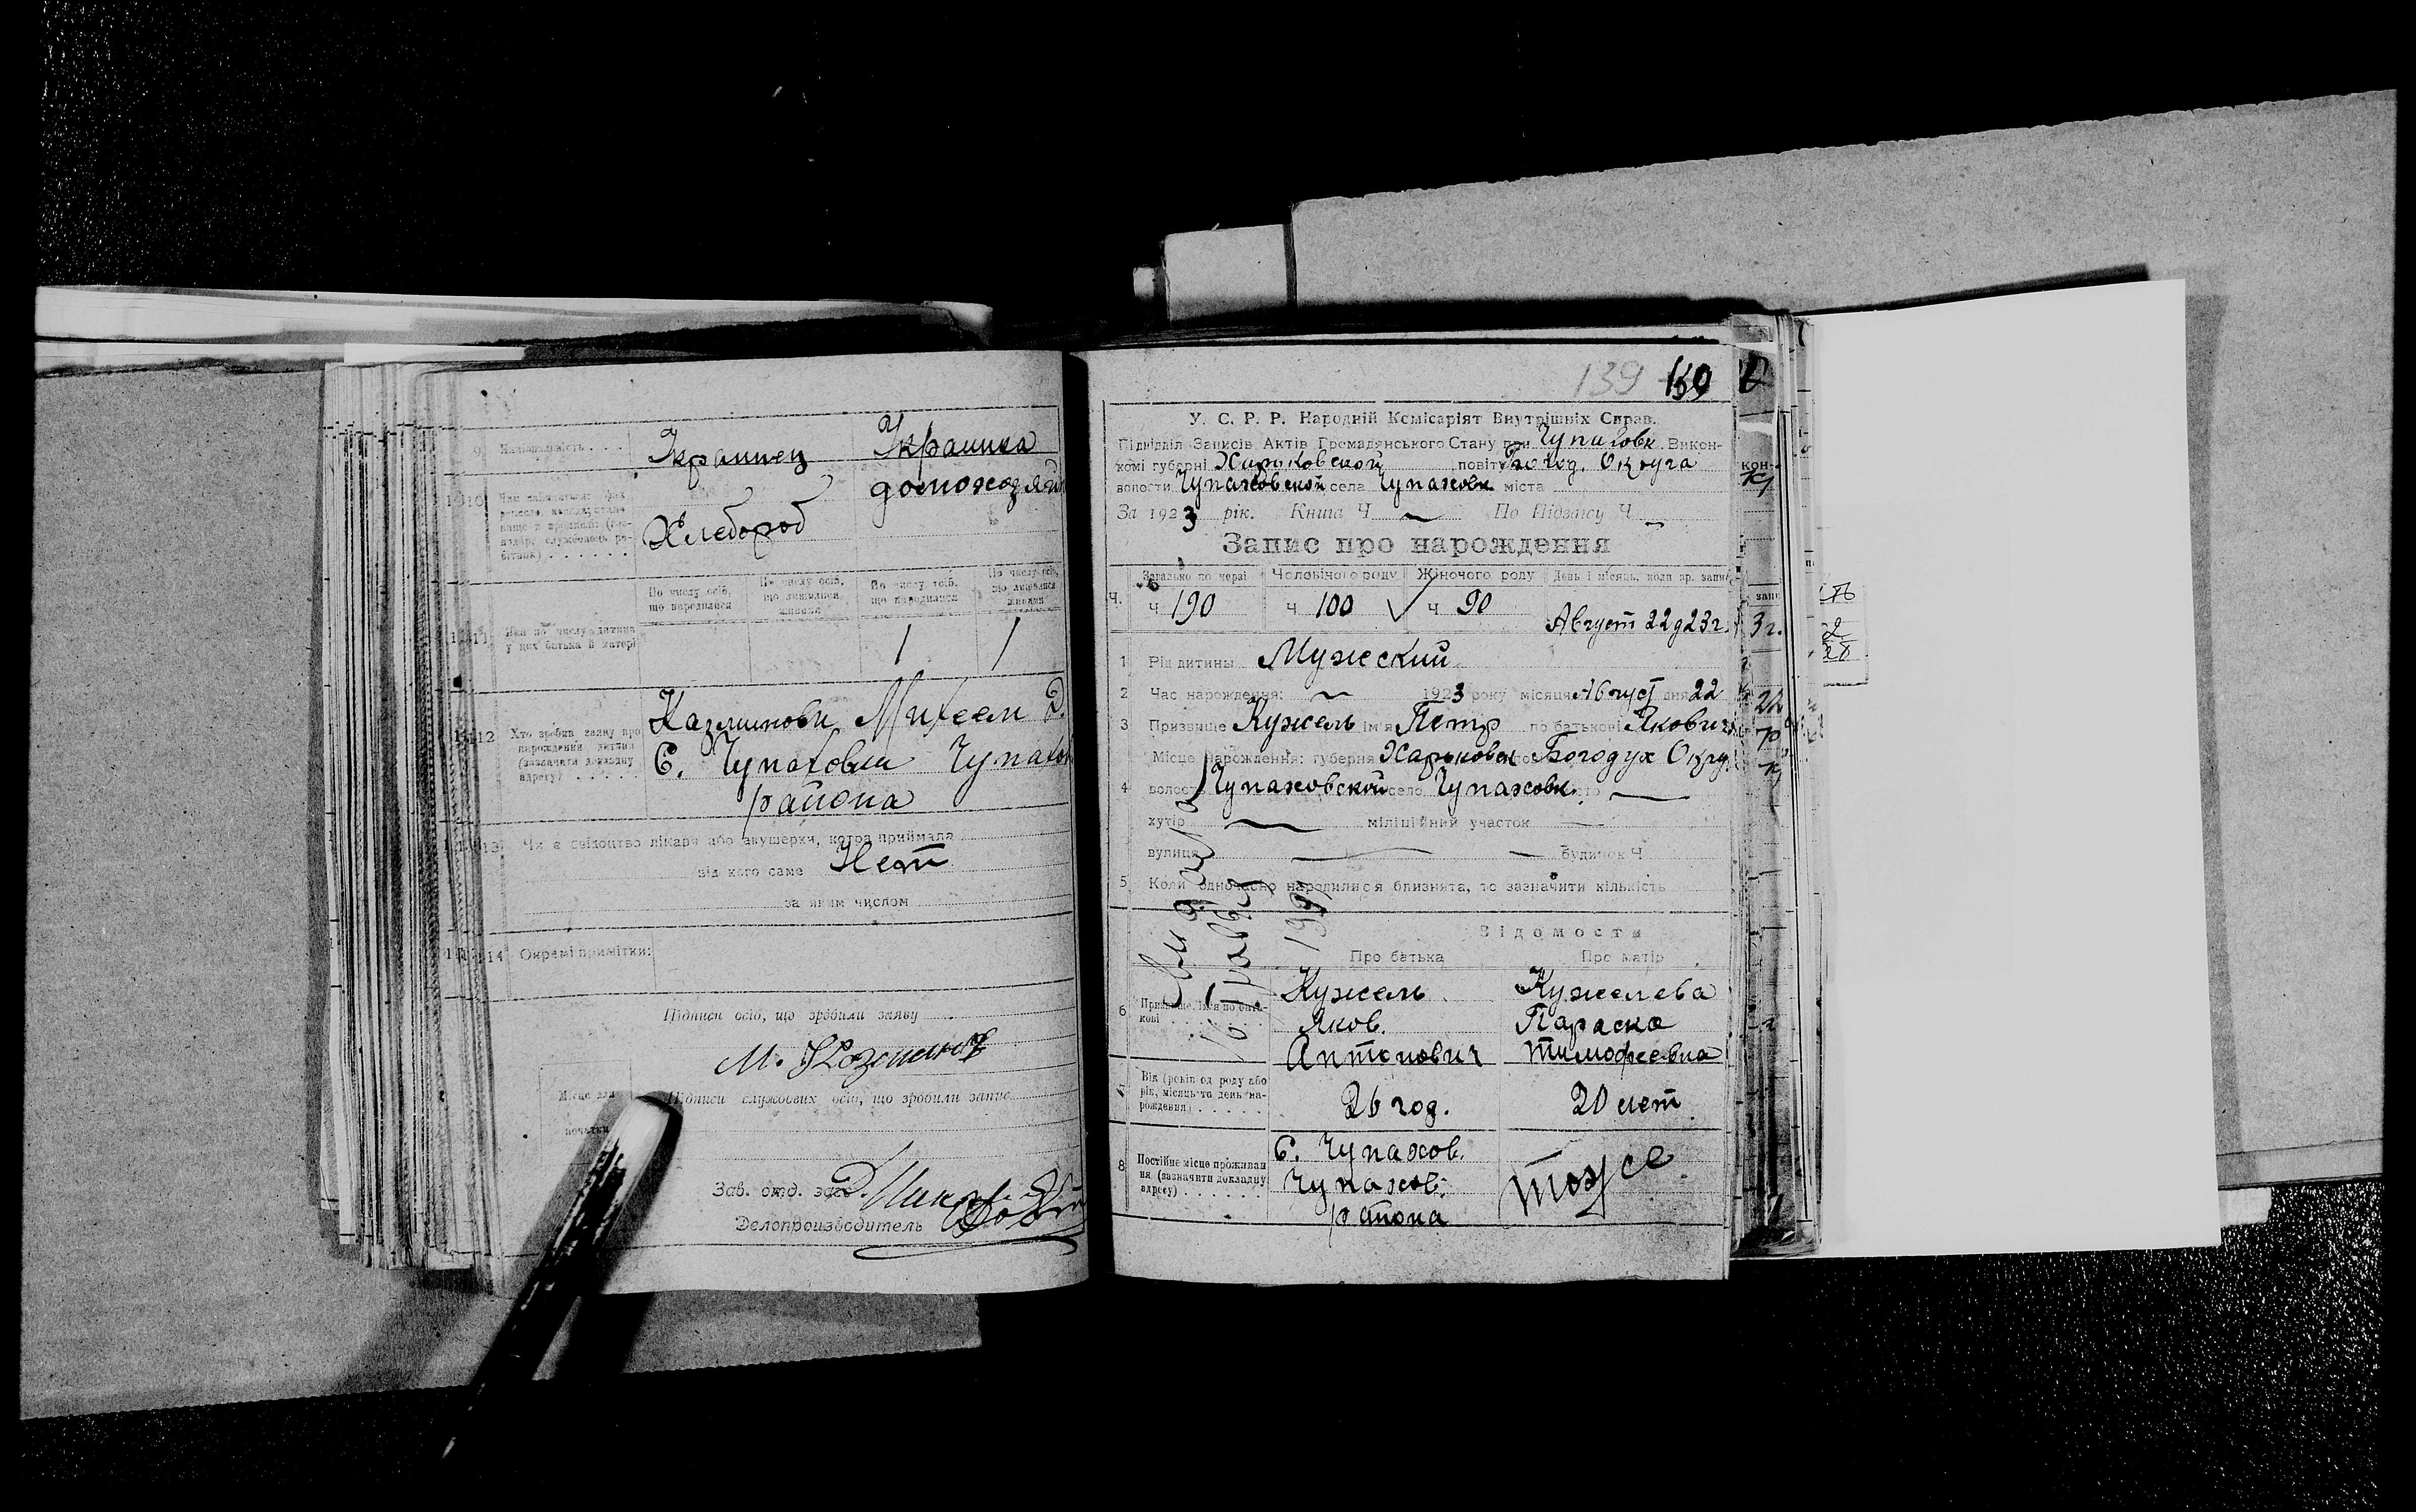 9 Національність . . . Украинец Украинка
10 Хлебороб домохозяй
По числу осіб, що народилися По числу осіб, що лишилися живими По числу осіб, що народилися По числу осіб, що лишилися живими
11 Яка по числу дитина у цих батька й матері 1 1
12 Хто зробив заяву про народження дитини (зазначити докладну адресу) . . . . . .
Михаил Э.
С. Чупаховки Чупахов
района
13 Чи є свідоцтво лікаря або акушерки, котра приймала
від кого саме Нет
за яким числом
14 Окремі примітки:
Підписи осіб, що зробили заяву
М.
Місце для печатки
Підписи службових осіб, що зробили запис
Зав. отд. загс.
Делопроизводитель
139 130
У. С. Р. Р. Народній Комісаріят Внутрішніх Справ.
Підвідділ Записів Актів Громадянського Стану при Чупаховк Викон-
комі губерні Харьковской повіту Богод. Округа
волости Чупаховской села Чупаховк міста
За 1923 рік. Книга Ч — По Підпису Ч —
Запис про нарождення
Загально по черзі Чоловічого роду Жіночого роду День і місяць, коли зр. запис
Ч. ч 190 ч 100 ч 90 Август 22 д 23 г.
1 Рід дитини Мужеский
2 Час нарождення: — 1923 року місяця Август дня 22
3 Призвище Кужель ім'я Петр по батькові Якович
Місце нарождення: губерня Харьковск Богодух Округ
4 волость Чупаховской село Чупаховк. —
хутір — міліційний участок —
вулиця — — будинок Ч
5 Коли одночасно народилися близнята, то зазначити кількість
Відомости
Про батька Про матір
6 Призвище, ім'я по батькові Кужель Кужелева
Яков. Параска
Антонович Тимофеевна
7 Вік (років од роду або рік, місяць та день народження) . . . . . 26 год. 20 лет
8 Постійне місце проживання (зазначити докладну адресу) . . . . . . С. Чупахов. тоже
Чупахов.
района